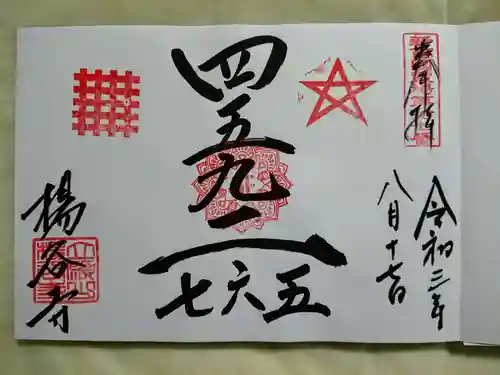 奉拝
令和三年
八月十七日
四五九二
七六五
楊谷寺